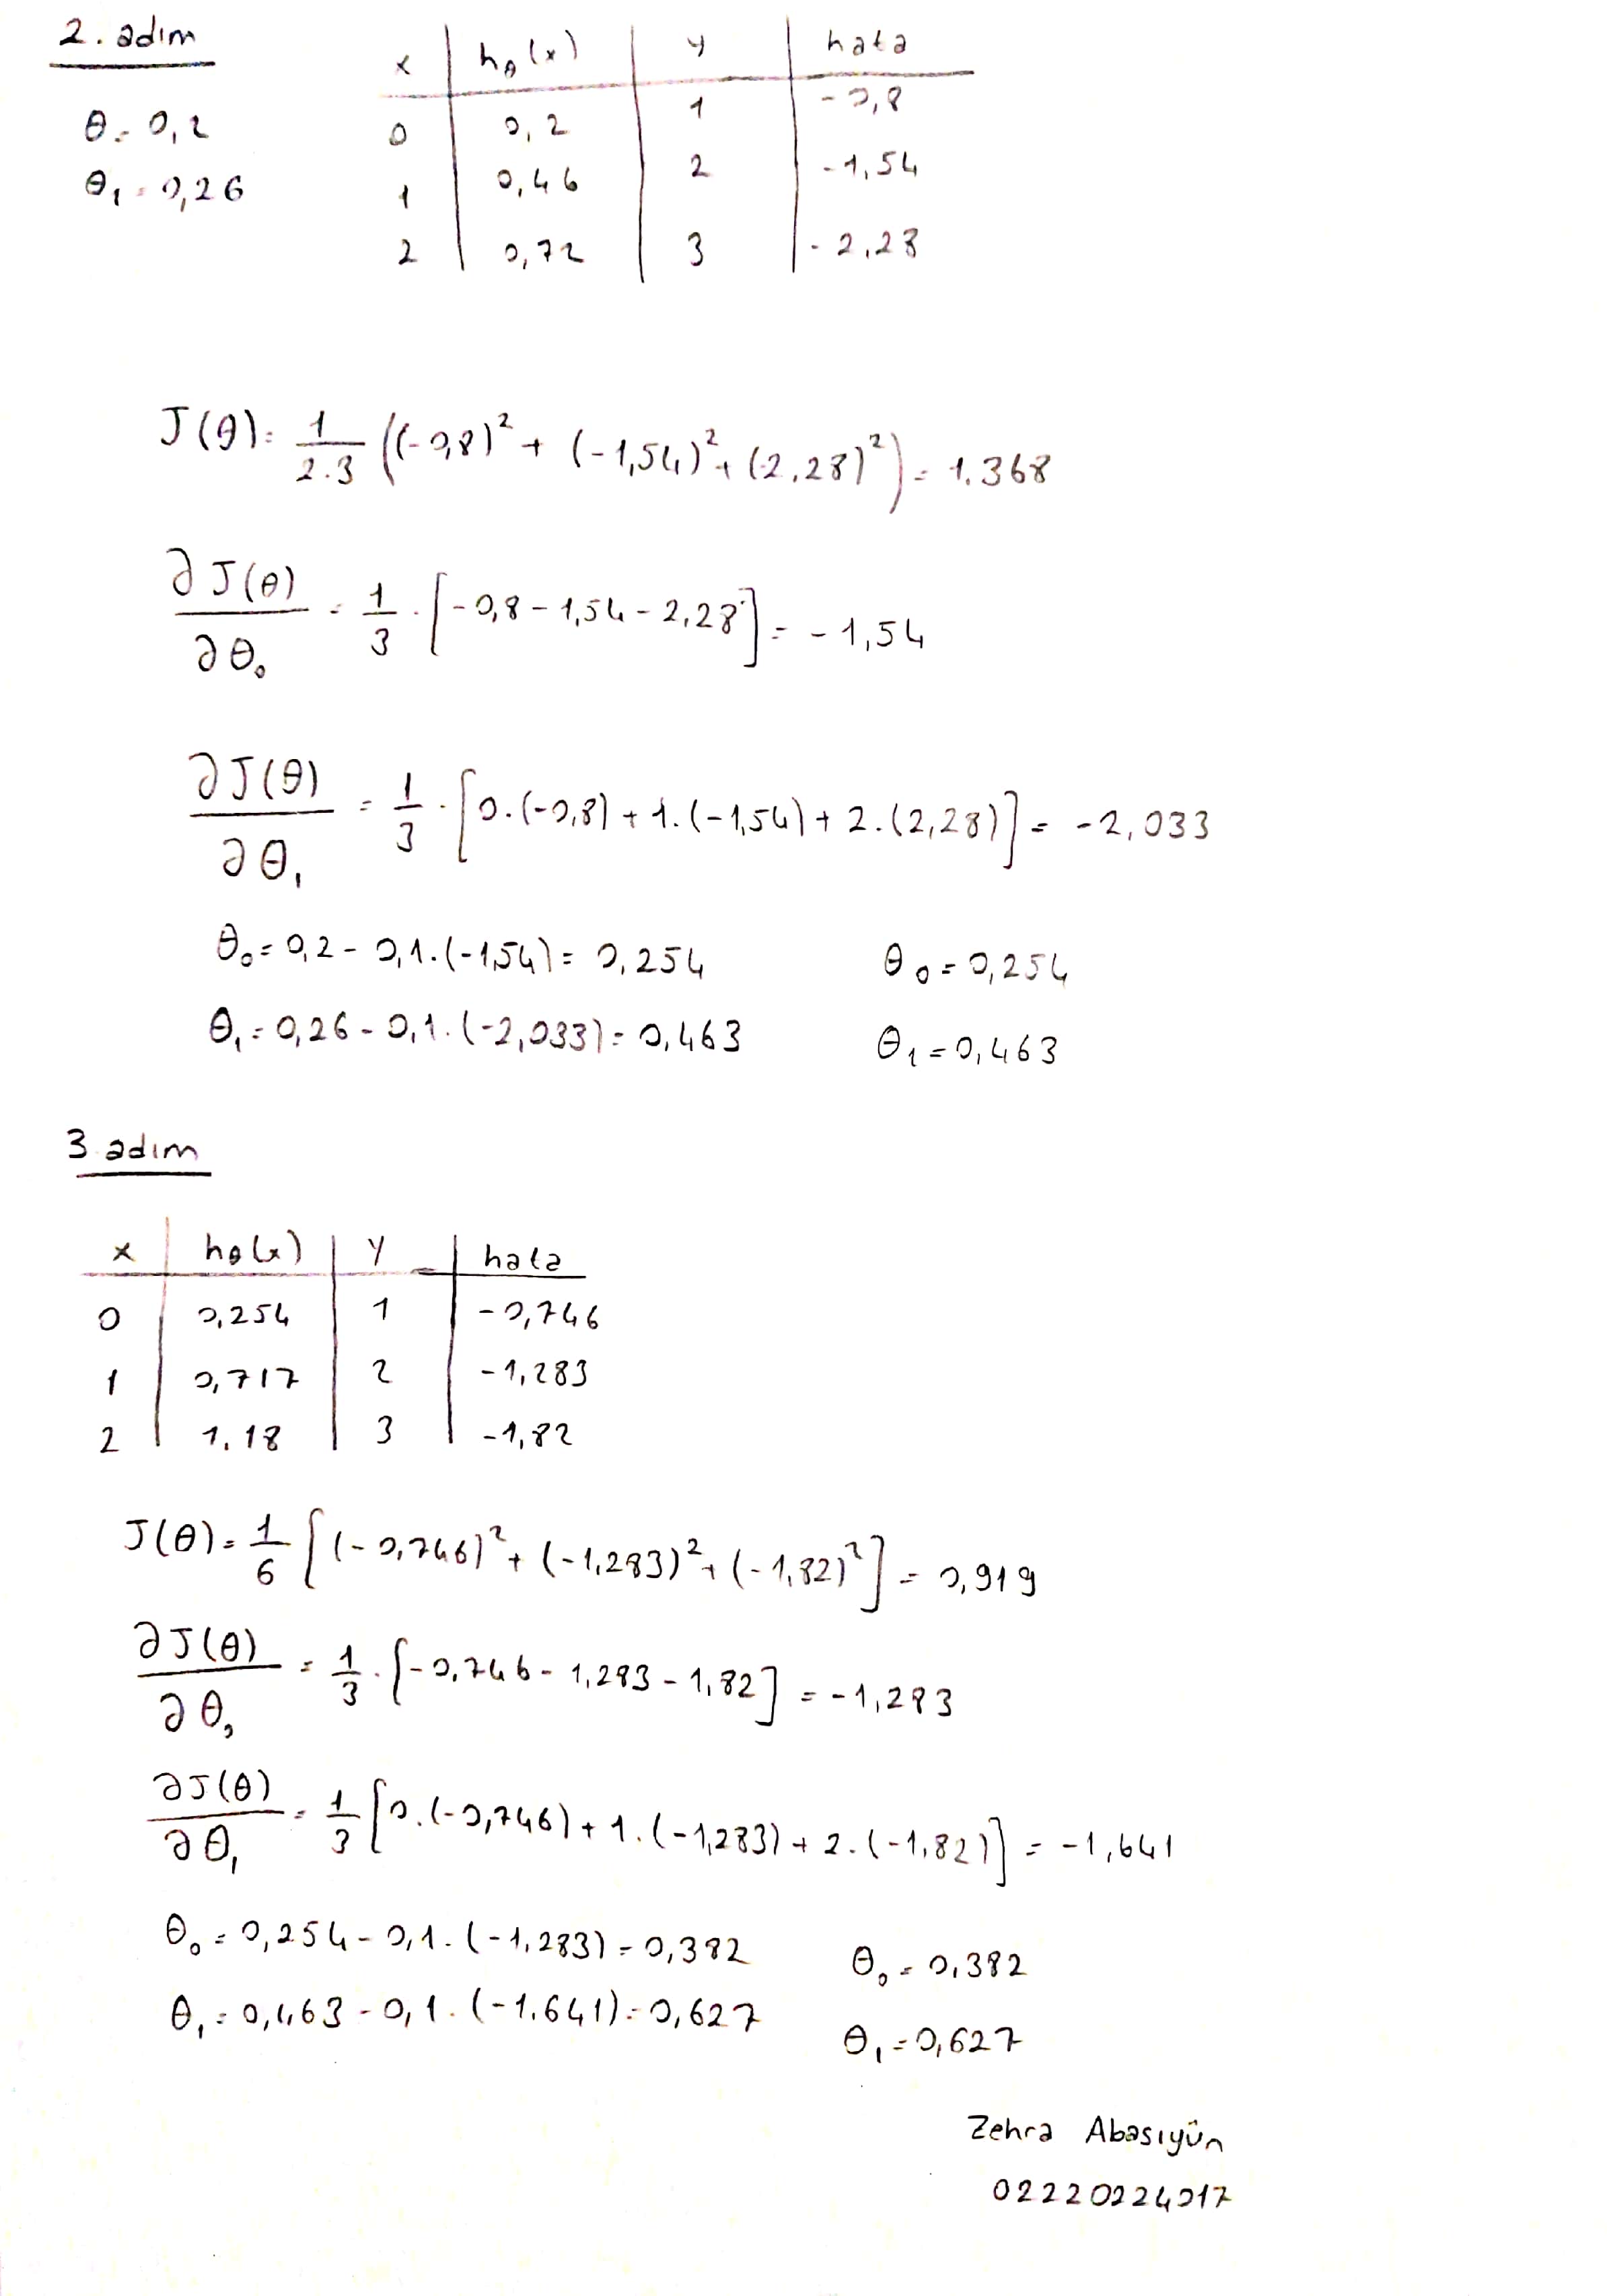 2. adım
θ₀ = 0,2
θ₁ = 0,26
x | hθ(x) | y | hata
0 | 0,2 | 1 | -0,8
1 | 0,46 | 2 | -1,54
2 | 0,72 | 3 | -2,28
J(θ) = 1/2.3 ((-0,8)² + (-1,54)² + (2,28)²) = 1.368
∂J(θ)/∂θ₀ = 1/3 . [-0,8 - 1,54 - 2,28] = -1,54
∂J(θ)/∂θ₁ = 1/3 . [0.(-0,8) + 1.(-1,54) + 2.(2,28)] = -2,033
θ₀ = 0,2 - 0,1.(-1,54) = 0,254 θ₀ = 0,254
θ₁ = 0,26 - 0,1.(-2,033) = 0,463 θ₁ = 0,463
3 adım
x | hθ(x) | y | hata
0 | 0,254 | 1 | -0,746
1 | 0,717 | 2 | -1,283
2 | 1.18 | 3 | -1,82
J(θ) = 1/6 [(-0,746)² + (-1,283)² + (-1,82)²] = 0,919
∂J(θ)/∂θ₀ = 1/3 . [-0,746 - 1,283 - 1,82] = -1,283
∂J(θ)/∂θ₁ = 1/3 [0.(-0,746) + 1.(-1,283) + 2.(-1,82)] = -1,641
θ₀ = 0,254 - 0,1.(-1,283) = 0,382 θ₀ = 0,382
θ₁ = 0,463 - 0,1.(-1.641) = 0,627 θ₁ = 0,627
Zehra Abasıyün
02220224017